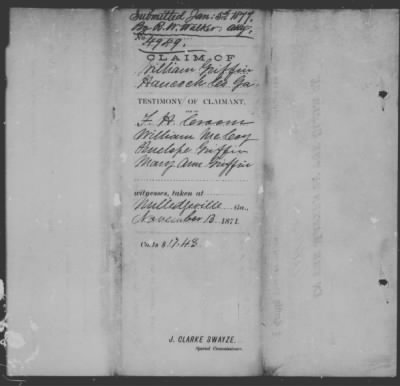 Submitted Jan: 5th 1877.
By R. W. Walker atty.
No
4989.
CLAIM OF
William Griffin
Hancock Co. Ga.
TESTIMONY OF CLAIMANT,
AND OF
F. H. Croom
William McCoy
Penelope Griffin
Mary Ann Griffin
witnesses, taken at
Milledgeville Ga.,
November 13 1871.
Co.ts $17.43
J. CLARKE SWAYZE,
Special Commissioner.